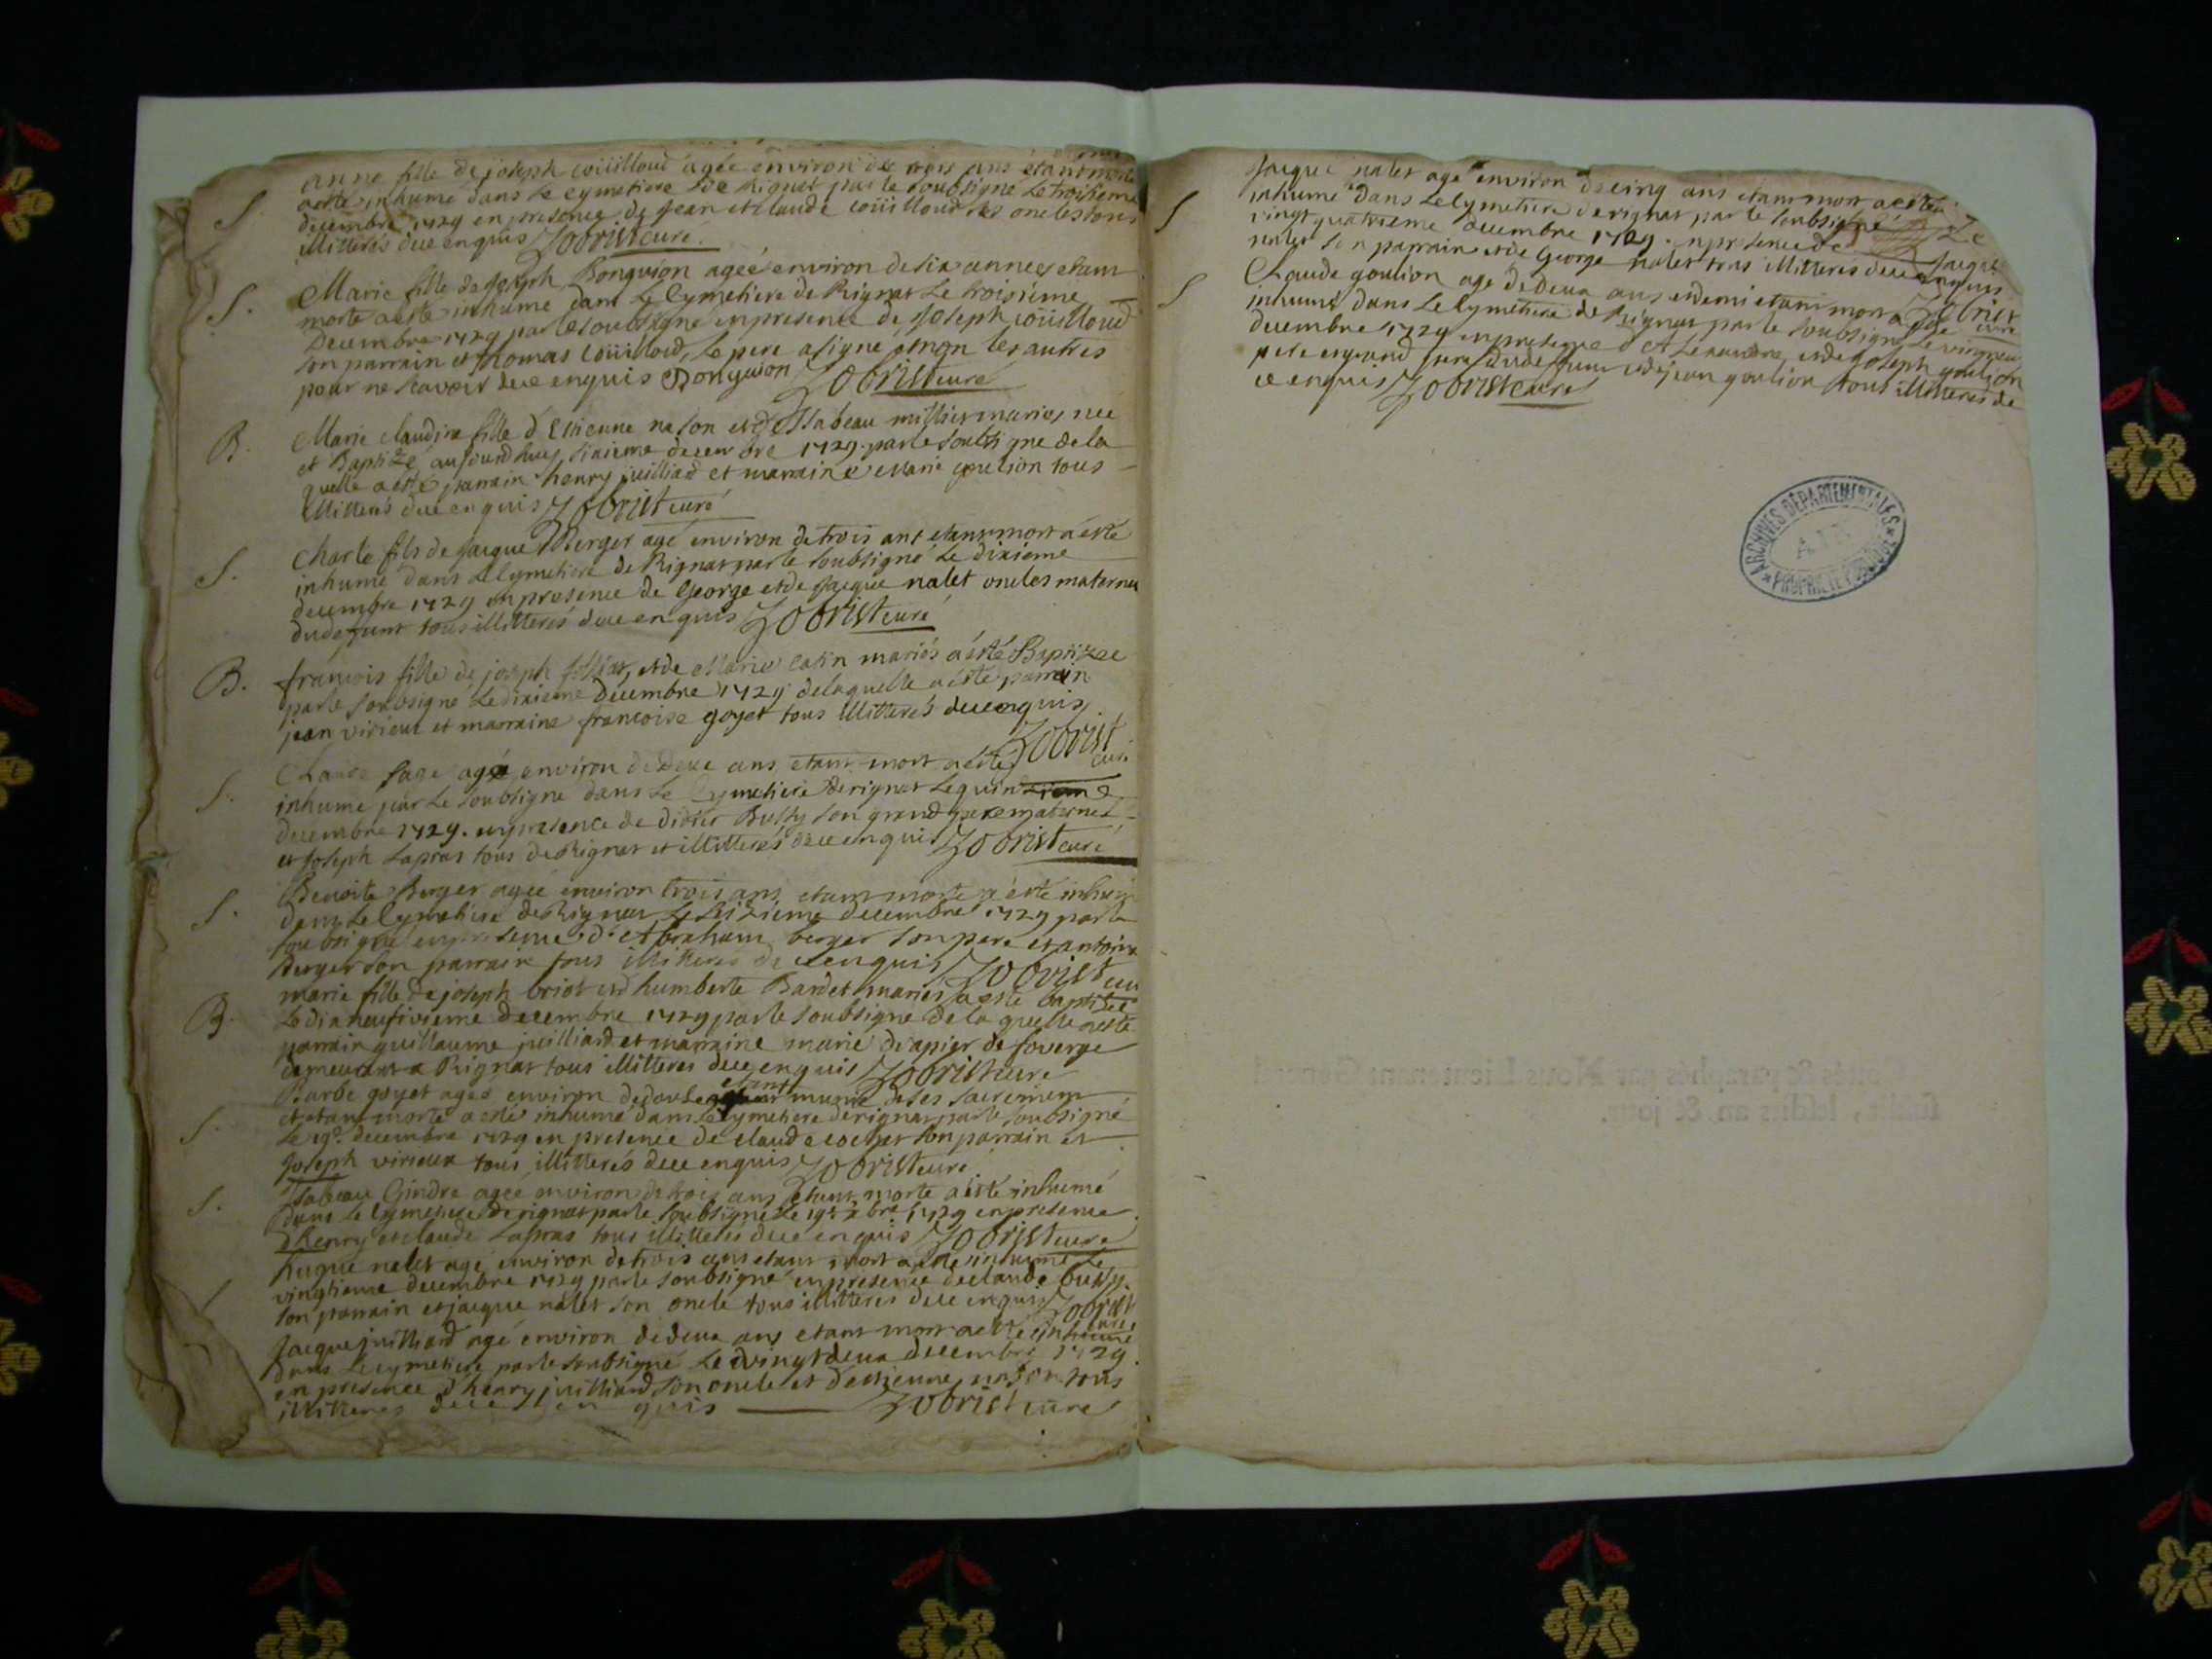 S. anne fille de joseph coüilloud agée environ de trois ans étant morte
a esté inhumé dans le cymetiere de Rignat par le soubsigné Le troisieme
decembre 1729 en presence de Jean et claude coüilloud ses oncles tous
illitterés de ce enquis Zobrist curé.
S. Marie fille de Joseph Bonguion ageé environ de six anneés étant
morte a esté inhume dans Le Cymetiere de Rignat Le troisieme
Decembre 1729 par le soubsigné en presence de Joseph coüilloud
son parrain et thomas coüilloud, Le pere a signé et non les autres
pour ne scavoir de ce enquis Bonguion Zobrist curé
B. Marie claudine fille d'Etienne nason et d'Isabeau millier mariés, née
et Baptizé aujourdhuy sixieme decembre 1729. par le soubsigné de la
quelle a esté parrain henry juilliard et marraine Marie goulion tous
illitterés de ce enquis Zobrist curé
S. Charle fils de Jaque Berger agé environ de trois ans etant mort a esté
inhumé dans Le Cymetiere de Rignat par le soubsigné Le dixieme
decembre 1729 en presence de George et de Jaque nalet oncles maternes
du defunt tous illitterés de ce enquis Zobrist curé
B. francois fille de joseph et de Marie Catin mariés a esté Baptizee
par le soubsigné Le dixieme Decembre 1729 de laquelle a esté parrain
jean virieux et marraine francoise goyet tous illitterés de ce enquis
Zobrist curé
S. Claude sage agé environ de deux ans etant mort a esté
inhumé par Le soubsigné dans Le Cymetiere de rignat Le quinzieme
decembre 1729. en presence de didier Bussy son grand pere maternel
et Joseph Lapras tous de Rignat et illitterés de ce enquis Zobrist curé
S. Benoite Berger agée environ trois ans etant morte a esté inhumé
dans Le Cymetiere de Rignat Le seizieme decembre 1729 par le
soubsigné en presence d'Abraham berger son pere et antoine
Berger son parrain tous illitteres de ce enquis Zobrist cu
B. marie fille de joseph briot et d'humberte Bardet mariés a esté baptizée
Le dix neufivieme decembre 1729 par le soubsigné de la quelle a esté
parrain guillaume juilliard et marraine marie drapier de
demeurant a Rignat tous illitteres de ce enquis Zobrist curé
Barbe goyet ageé environ de etant munie de ses sacremens
S. et etant morte a esté inhumé dans Le cymetiere de rignat par le soubsigné
Le 19e decembre 1729 en presence de claude son parrain et
Joseph virieux tous illitterés de ce enquis Zobrist curé
S. Isabeau Gindre ageé environ de trois ans etant morte a esté inhumé
dans Le Cymetiere de rignat par le soubsigné Le 19e xbre 1729 en presence
d'henry et claude Lapras tous illitterés de ce enquis Zobrist curé
hugue nalet agé environ de trois ans etant mort a esté inhumé Le
S vingtieme decembre 1729 par le soubsigné en presence de claude bussy
son parrain et jaque nalet son oncle tous illitteres de ce enquis Zobrist curé
Jaque juilliard agé environ de deux ans etant mort a esté inhumé
dans Le cymetiere par le soubsigné Le vingt deux decembre 1729
en presence d'henry juilliard son oncle et d'estienne nason tous
illitteres de ce en quis Zobrist curé
Jaque nalet agé environ de cinq ans etant mort a esté
S inhumé dans Le Cymetiere de rignat par le soubsigné Le
vingt quatrieme decembre 1729. en presence de Jaque
nalet son parrain et de George nalet tous illitterés de ce enquis
Zobrist curé
S Claude goulion agé de deux ans et demi etant mort a esté
inhumé dans Le Cymetiere de Rignat par le soubsigné Le
decembre 1729 en presence d'Alexandre et de Joseph goulion
pere et grand pere du defunt et de jean goulion tous illitterés de
ce enquis Zobrist curé
ARCHIVES DÉPARTEMENTALES
AIN
PROPRIÉTÉ PUBLIQUE
Cottés & paraphés par Nous Lieutenant General
susdit, lesdits an & jour.